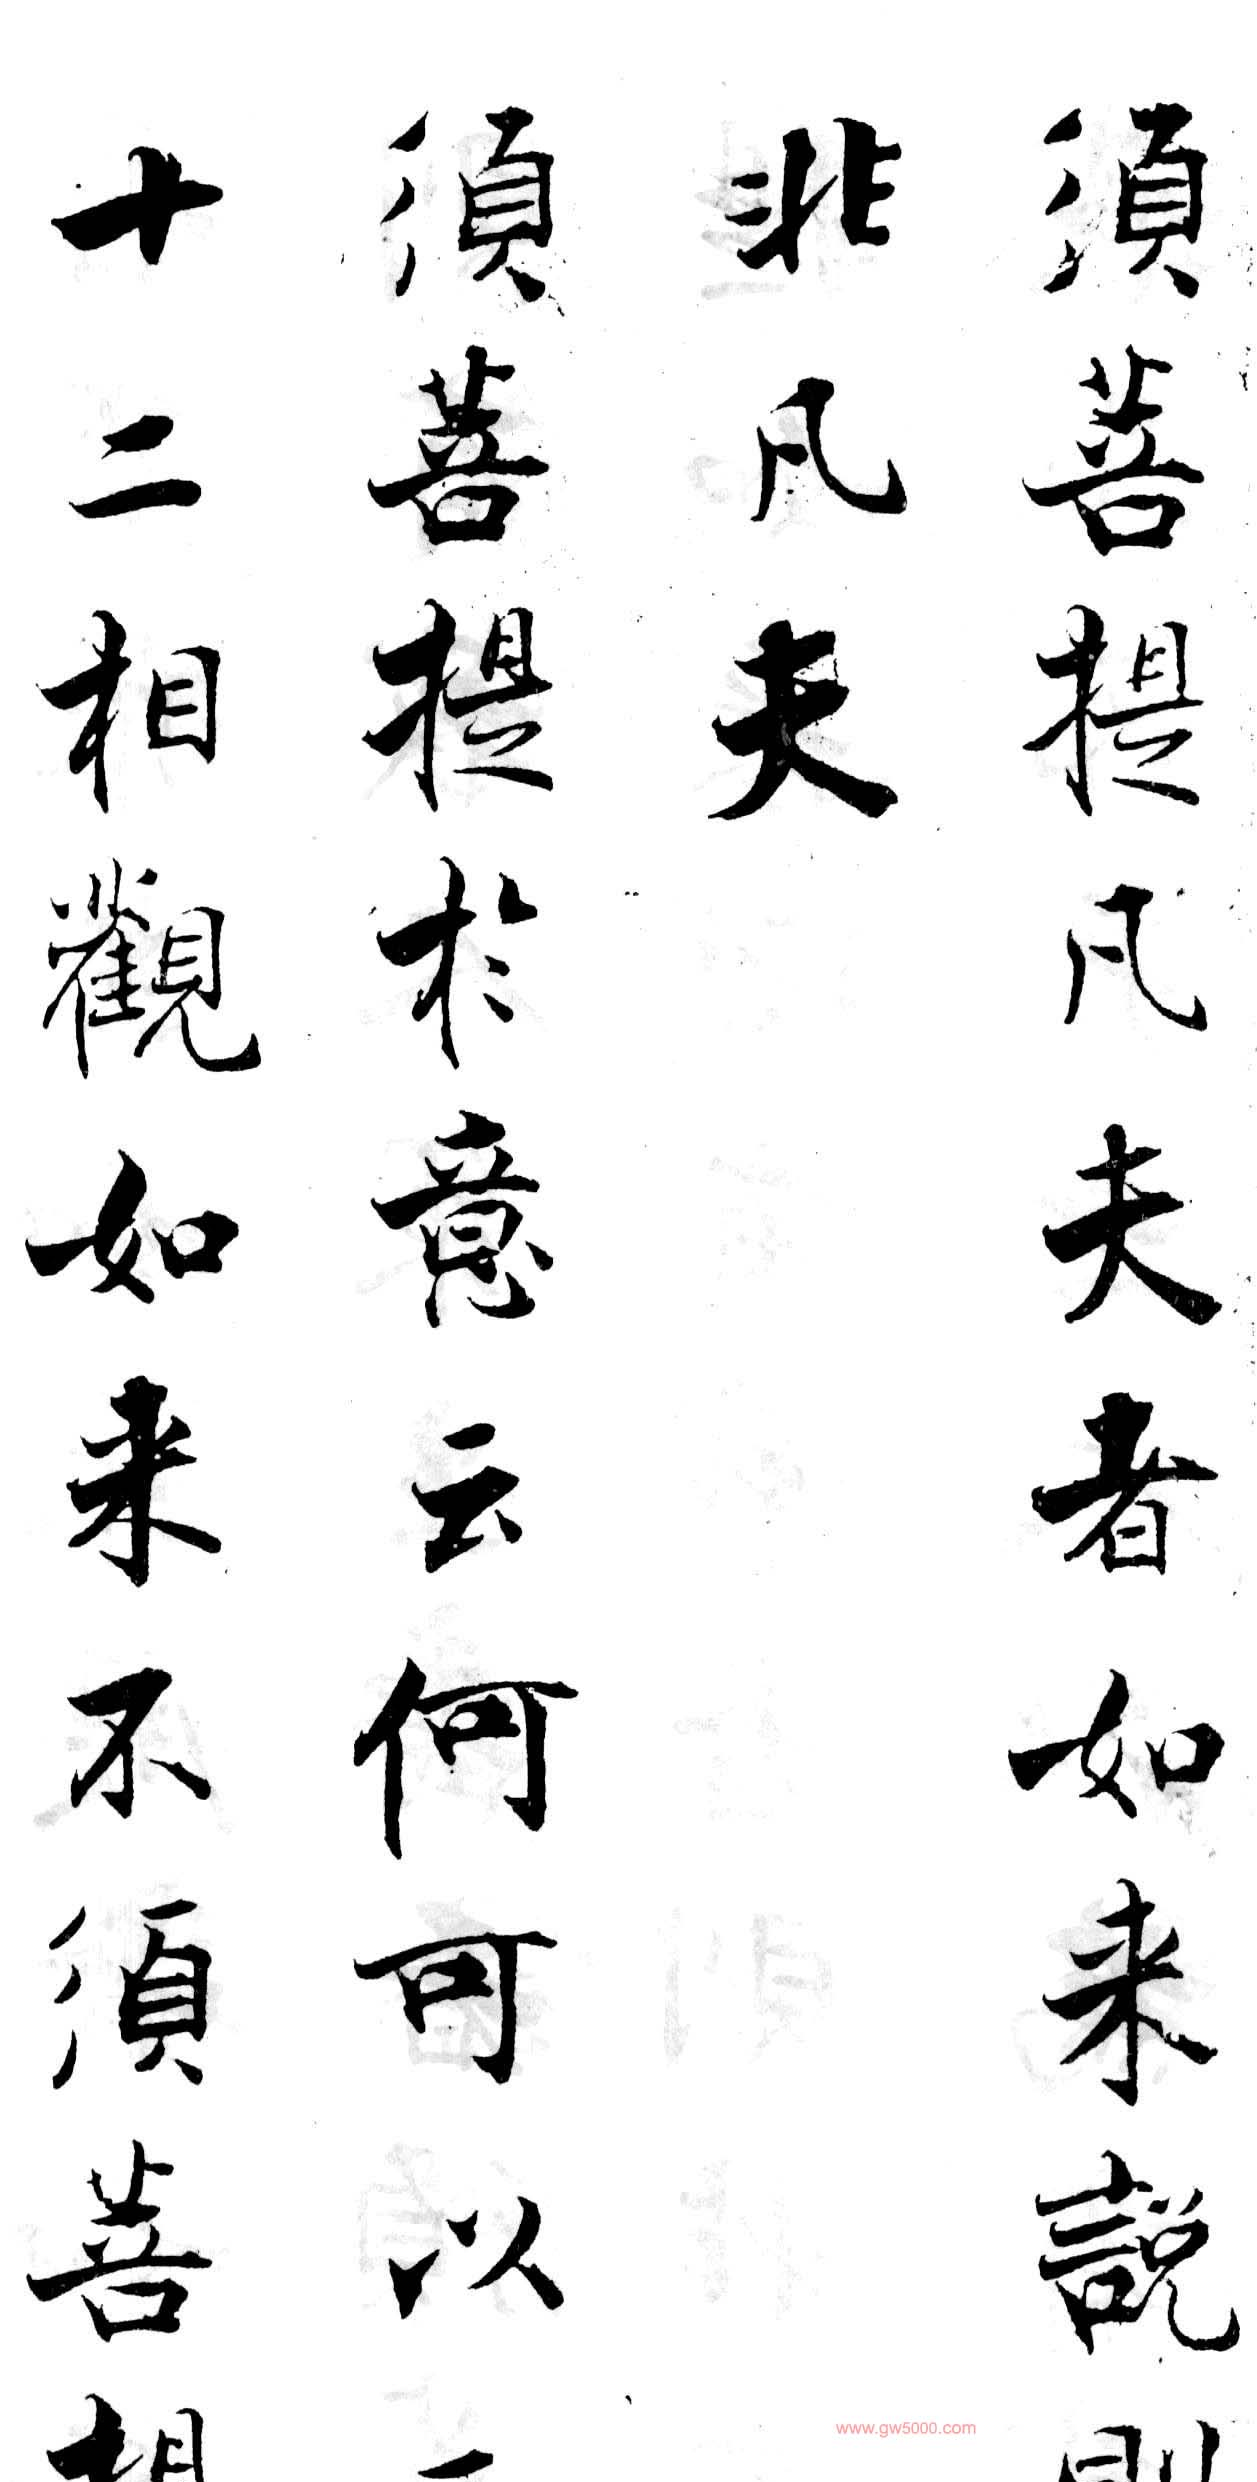 須菩提凡夫者如来説則
非凡夫
須菩提於意云何可以三
十二相觀如来不須菩提
www.gw5000.com